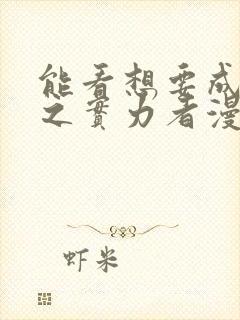 能看想要成
之實力者漫
虾米